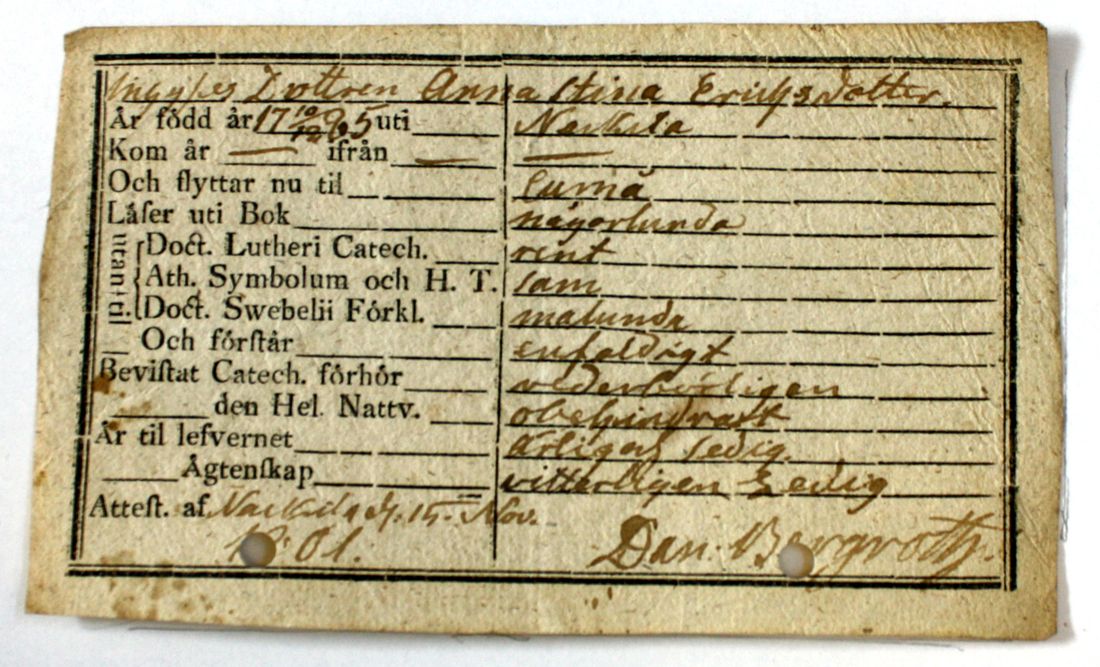 Dottren Anna Stina Erichsdotter.
År född år 17 10/12 85 uti Naskila
Kom år — ifrån — —
Och flyttar nu til Eumå
Låſer uti Bok någorlunda
utan-til.
Doct. Lutheri Catech. rent
Ath. Symbolum och H. T. sam
Doct. Swebelii Förkl. malunda
Och förſtår enfaldigt
Beviſtat Catech. förhör vederbörligen
den Hel. Nattv. obehindradt
Är til lefvernet ärligen sedig.
Ägtenſkap vitterligen Ledig
Atteſt. af Naskila d. 15. Nov.
1801. Dan. Bergroth.